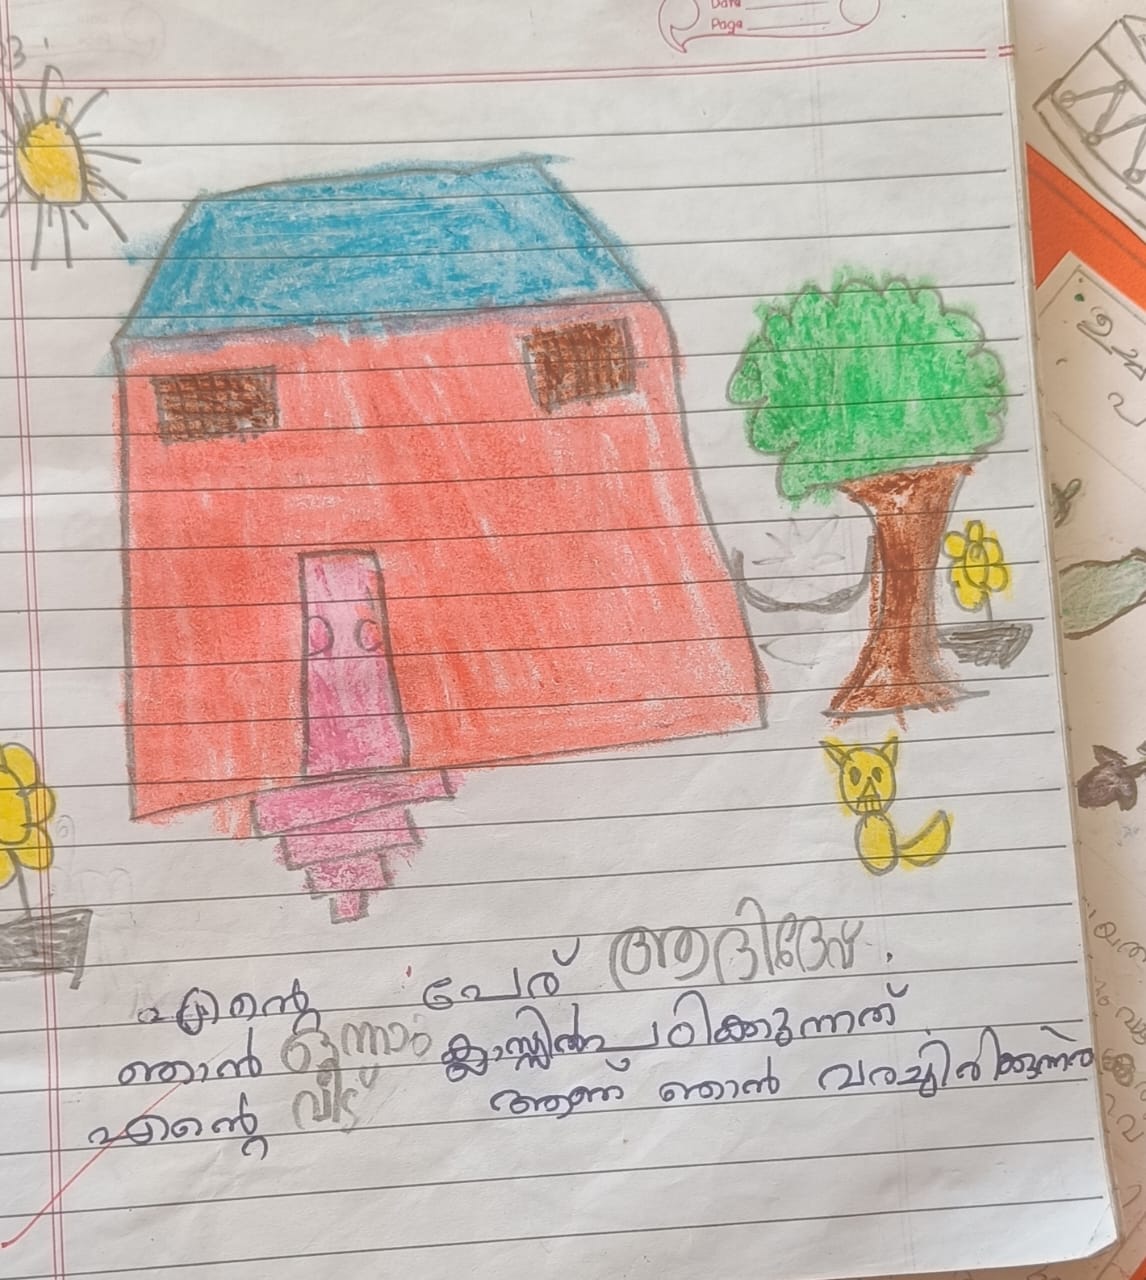 Date
Page
എന്റെ പേര് ആദിദേവ.
ഞാൻ ഒന്നാം ക്ലാസ്സിൽ പഠിക്കുന്നത്
എന്റെ വീട് ആണ് ഞാൻ വരച്ചിരിക്കുന്നത്